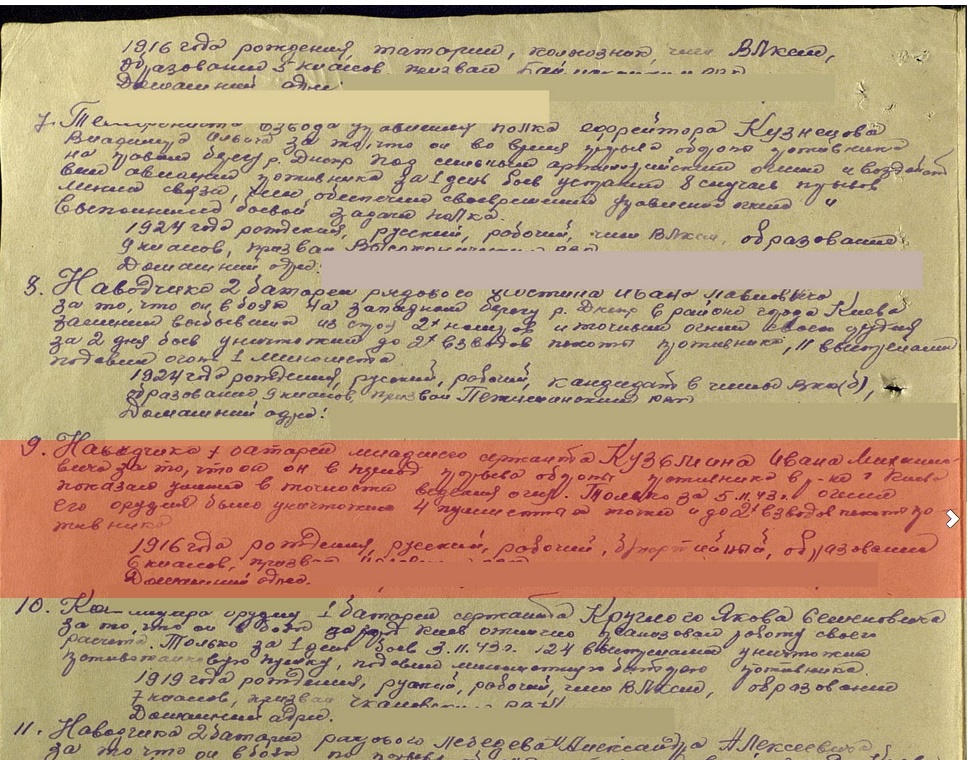 1916 года рождения, татарин, колхозник, член ВЛКСМ,
образование 5 классов призван
Домашний адрес
7. взвода управления полка ефрейтора Кузнецова
Владимира за то, что он во время прорыва обороны противника
на правом берегу р. Днепр под сильным артиллерийским огнем и воздействием
авиации противника за 1 день боев устранил 8 случаев порывов
линий связи, чем обеспечил своевременное управление огнем и
выполнение боевой задачи полка.
1924 года рождения, русский, рабочий, член ВЛКСМ, образование
9 классов, призван
Домашний адрес:
8. Наводчика 2 батареи рядового Ивана Павловича
за то, что он в боях на западном берегу р. Днепр в районе города Киева
заменил выбывших из строя 2х номеров и точным огнем своего орудия
за 2 дня боев уничтожил до 2х взводов пехоты противника, 11 выстрелами
подавил огонь 1 миномета
1924 года рождения, русский, рабочий, кандидат в члены ВКП(б),
образование 9 классов, призван РВК
Домашний адрес:
9. Наводчика батареи младшего сержанта Кузьмина Ивана
за то, что он в период прорыва обороны противника в р-не г. Киева
показал умение в точности ведения огня. Только за 5.11.43 г. огнем
его орудия было уничтожено 4 пулеметных точки и до 2х взводов пехоты про-
тивника
1916 года рождения, русский, рабочий, беспартийный, образование
6 классов, призван
Домашний адрес.
10. Командира орудия 1 батареи сержанта Круглого Якова Семеновича
за то, что он в боях за город Киев отлично организовал работу своего
расчета. Только за 1 день боев 3.11.43 г. 124 выстрелами уничтожил
противотанковую пушку, подавил минометную батарею противника.
1919 года рождения, русский, рабочий, член ВЛКСМ, образование
7 классов, призван Чкаловским
Домашний адрес.
11. Наводчика 2 батареи рядового Лебедева Александра Алексеевича
за то что он в боях по прорыву